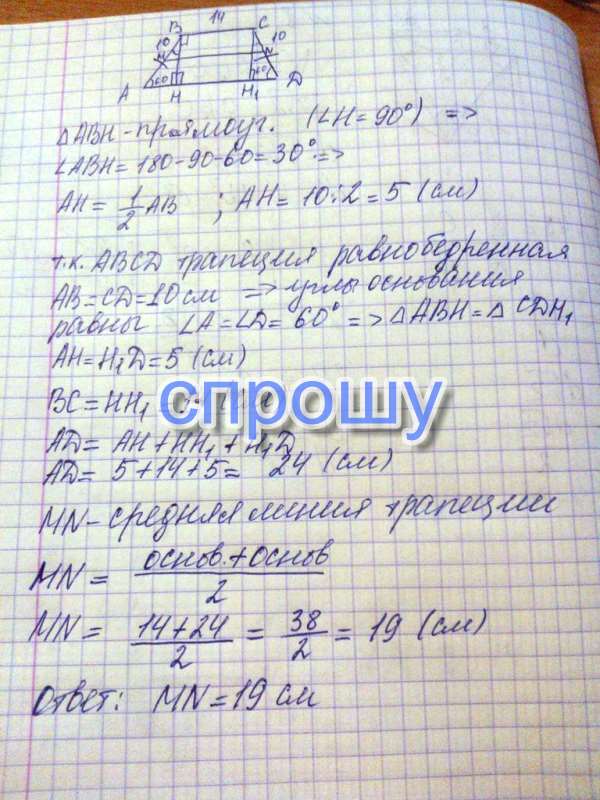 14
B C
10 10
M N
60 60
A H H₁ D
△ABH - прямоуг. (∠H = 90°) =>
∠ABH = 180-90-60 = 30° =>
AH = 1/2 AB ; AH = 10:2 = 5 (см)
т.к. ABCD трапеция равнобедренная
AB = CD = 10 см => углы основания
равны ∠A = ∠D = 60° => △ABH = △CDH₁
AH = H₁D = 5 (см)
BC = HH₁
спрошу
AD = AH + HH₁ + H₁D
AD = 5 + 14 + 5 = 24 (см)
MN - средняя линия трапеции
MN = основ. + основ / 2
MN = 14 + 24 / 2 = 38 / 2 = 19 (см)
Ответ: MN = 19 см